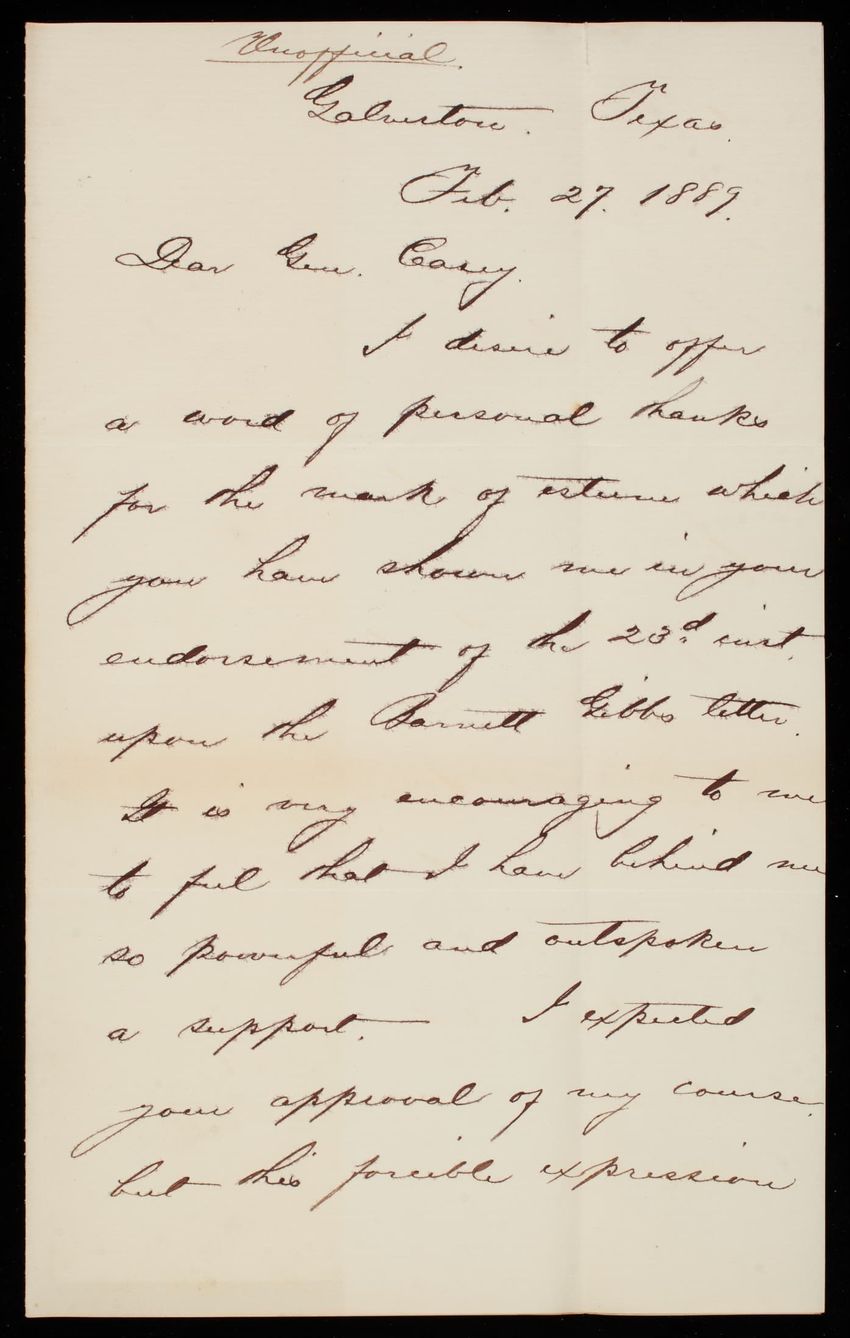 Unofficial.
Galveston. Texas.
Feb. 27. 1889.
Dear Gen. Casey.
I desire to offer
a word of personal thanks
for the mark of esteem which
you have shown me in your
endorsement of the 23d inst.
upon the Barnett Gibbs letter.
It is very encouraging to me
to feel that I have behind me
so powerful and outspoken
a support. — I expected
your approval of my course,
but this forcible expression